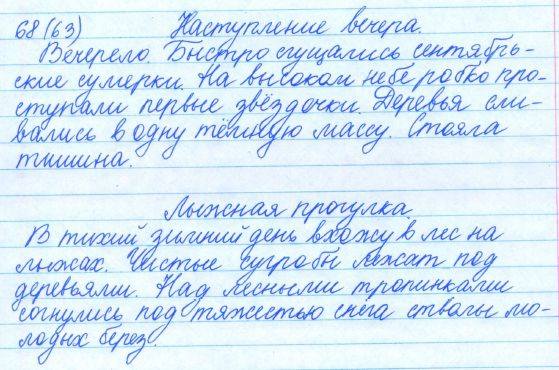 68 (63) Наступление вечера.
Вечерело. Быстро сгущались сентябрь-
ские сумерки. На высоком небе робко про-
ступали первые звёздочки. Деревья сли-
вались в одну тёмную массу. Стояла
тишина.
Лыжная прогулка.
В тихий зимний день вхожу в лес на
лыжах. Чистые сугробы лежат под
деревьями. Над лесными тропинками
согнулись под тяжестью снега стволы мо-
лодых берез.